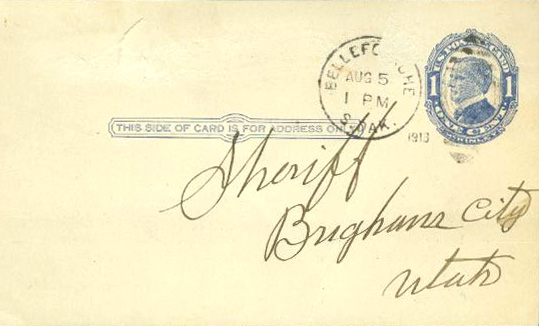 BELLEFOURCHE
AUG 5
1 PM
S. DAK.
1913
U.S. POSTAL CARD
1 1
ONE CENT
MCKINLEY
THIS SIDE OF CARD IS FOR ADDRESS ONLY
Sheriff
Brigham City
Utah